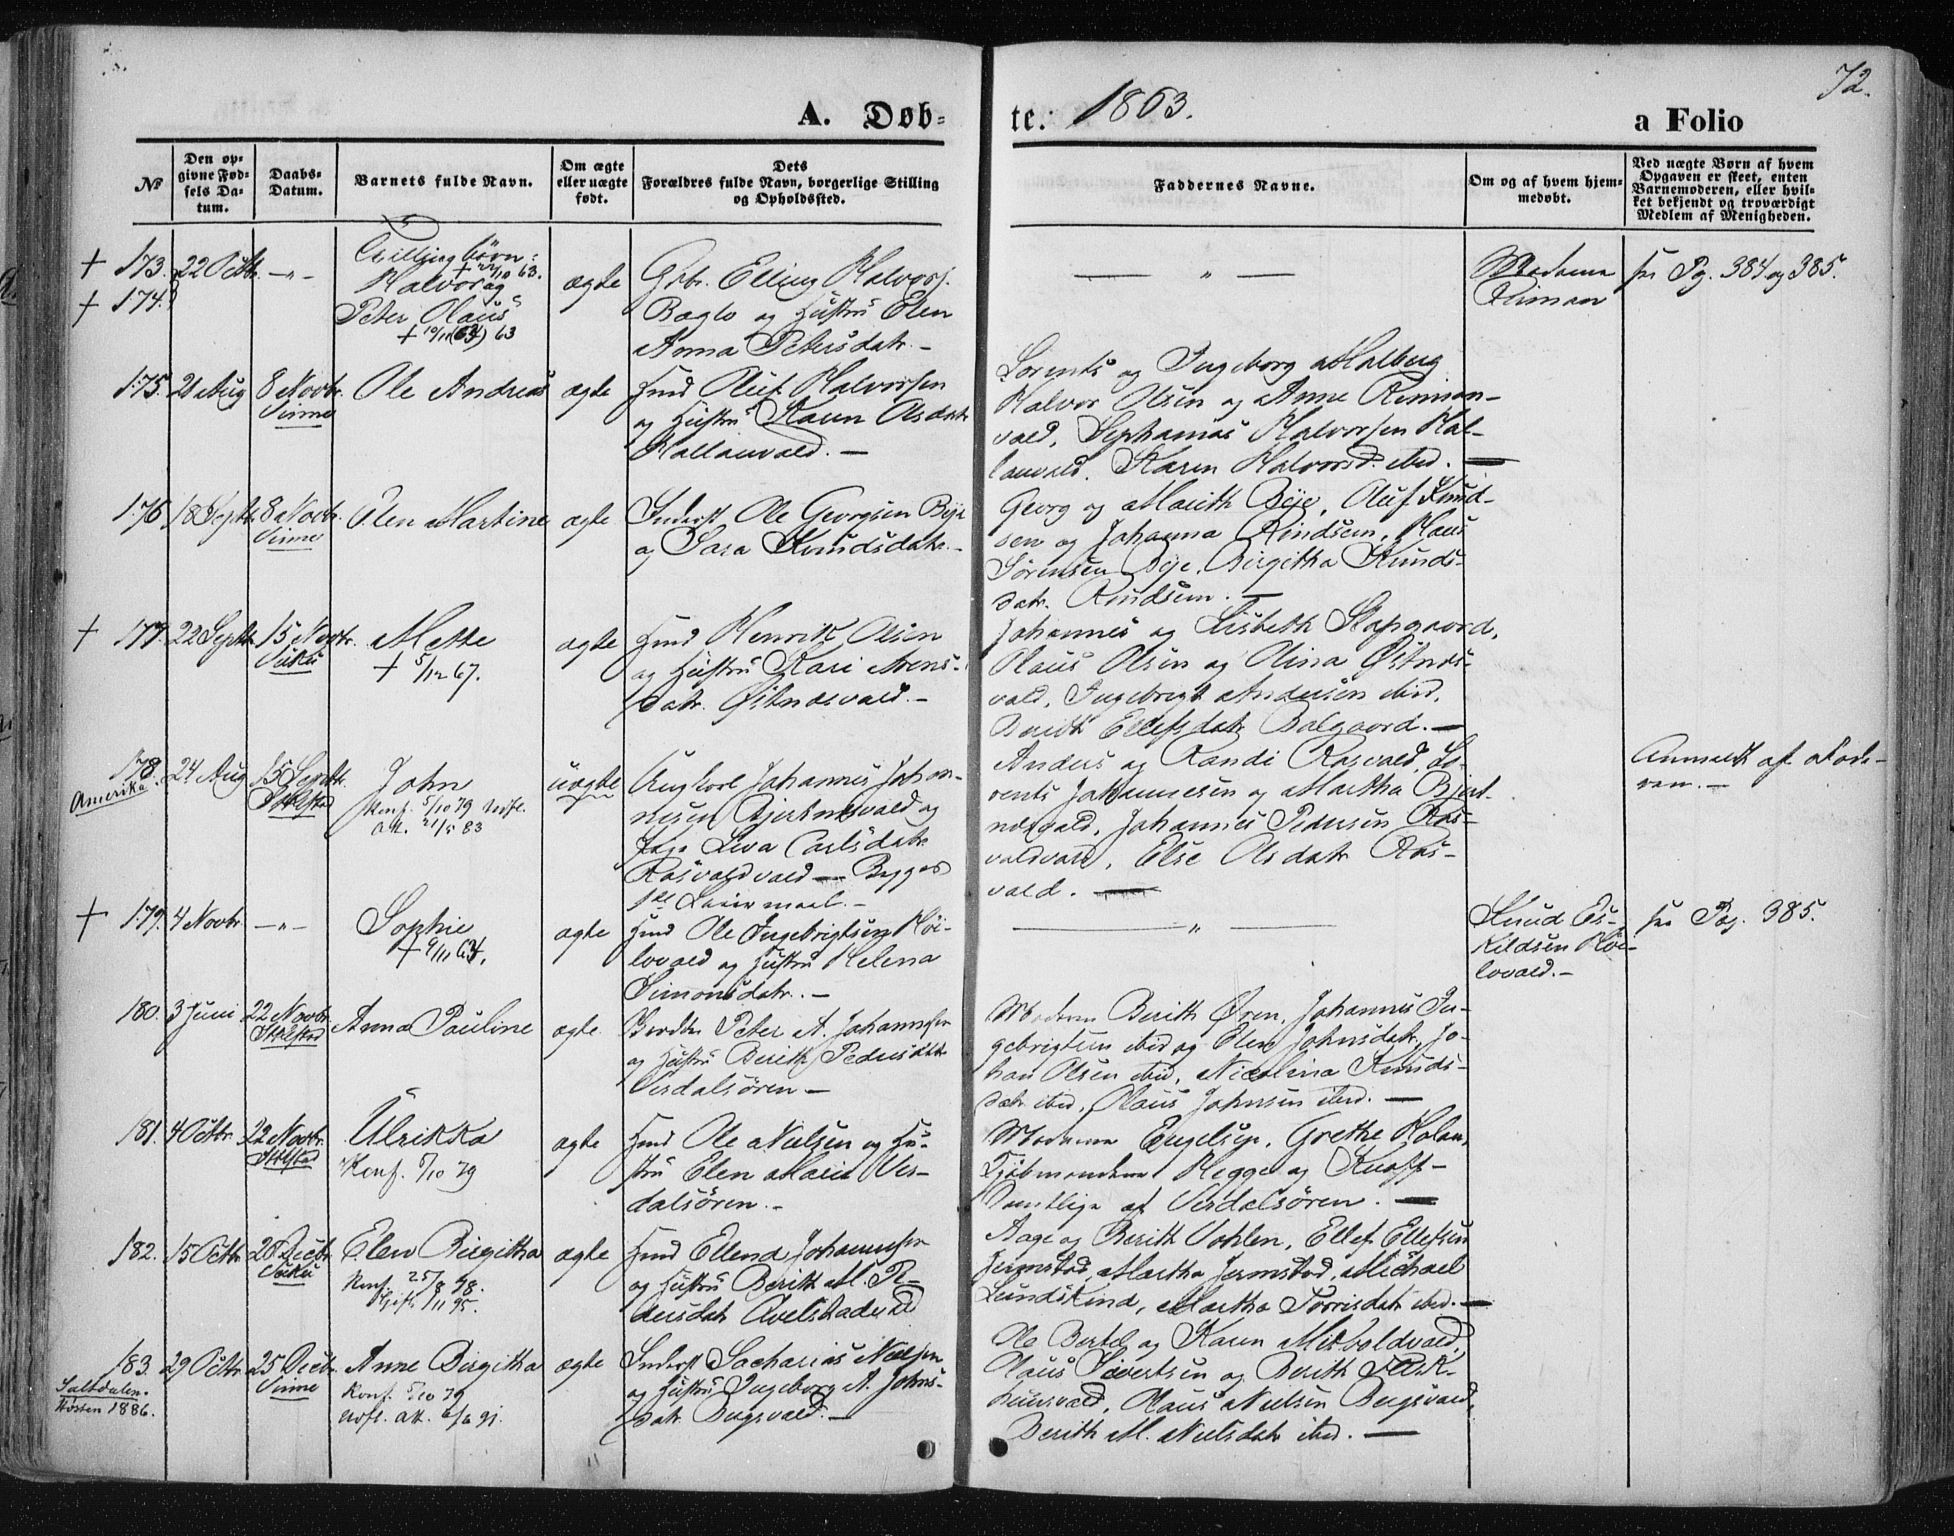 72.
A. Døb- te. 1863. a Folio
No
Den op-
givne Fød-
sels Da-
tum.
Daabs-
Datum.
Barnets fulde Navn.
Om ægte
eller uægte
født.
Dets
Forældres fulde Navn, borgerlige Stilling
og Opholdssted.
Faddernes Navne.
Om og af hvem hjem-
medøbt.
Ved uægte Børn af hvem
Opgaven er skeet, enten
Barnemoderen, eller hvil-
ket bekjendt og troværdigt
Medlem af Menigheden.
+ 173. 22 Octbr. -"-
+ 174.
Tvillingbørn:
+ 22/10 63.
Halvor og
Peter Olaus
+ 10/11 63
ægte
Gbr. Elling Halvors.
Baglo og Hustru Elen
Anna Petersdatr. -
— " —
Madame
Riman
see Pg. 384 og 385.
175. 21 Aug 8 Novbr.
Vinne
Ole Andreas
ægte
Hmd Oluf Halvorsen
og Hustru Karen Olsdatr
Hallanvald. —
Lorents og Ingeborg Malberg
Halvor Olsen og Anne Reman-
vald, Sephanias Halvorsen Hal-
lanvald. Karen Halvorsd. ibid. —
176. 18 Septr 8 Novbr.
Vinne
Elen Martine
ægte
Inderst Ole Georgsen Bye
og Sara Knudsdatr. -
Georg og Marith Bye, Oluf Knud-
sen og Johanna Rindsem, Claus
Sørensen Bye, Birgitha Knuds-
datr. Rindsem. —
+ 177. 22 Septr. 15 Novbr.
Vuku
Mette
+ 5/12 67.
ægte
Hmd Henrik Olsen
og Hustru Kari Arens-
datr. Østnesvald. -
Johannes og Lisbeth Slapgaard,
Olaus Olsen og Olina Østnes-
vald, Ingebrigt Andersen ibid.
Berith Ellefsdatr Balgaard. —
178. 24 Aug 15 Septr.
Amerika.
Stiklestad
John
Konf. 5/10 79
att. 21/5 83
uægte
Ungkarl Johannes Johan-
nesen Bjertnesvald og
Pige Liva Carlsdatr
Rosvaldvald — Begges
1ste Leiermaal. -
Anders og Randi Rosvald, Lo-
rents Johannesen og Martha Bjert-
nesvald, Johannes Pedersen Ros-
valdvald, Else Olsdatr Ros-
vald. —
Anmeldt af Fade-
ren. -
+ 179. 4 Novbr. -"-
Sophie
+ 9/11 63.
ægte
Hmd Ole Ingebrigtsen Køi-
lovald og Hustru Helena
Simonsdatr. -
— " —
Knud Es-
kildsen Køi-
lovald. -
see Pag. 385.
180. 3 Juni 22 Novbr.
Stiklestad
Anna Pauline
ægte
Peter A. Johannesen
og Hustru Berith Pedersdatr
Verdalsøren —
Berith Øren, Johannes In-
gebrigtsen ibid og Elen Johnsdatr, Jo-
han Olsen ibid, Nicolina Knuds-
datr ibid, Olaus Johnsen ibid. —
181. 4 Octbr. 22 Novbr.
Stiklestad
Ulrikka
Konf. 5/10 79
ægte
Hmd Ole Nielsen og Hu-
stru Elen Marie Ver-
dalsøren. -
Madame Engelsen, Grethe Holan,
Kjøbmændene Hegge og Knoff -
Samtlige af Verdalsøren. —
182. 15 Octbr. 26 Decbr.
Vuku
Elen Birgitha
Konf. 25/8 78.
Gift /11 95.
ægte
Hmd Ellend Johannesen
og Hustru Berith M. Pe-
dersdatr
Aage og Berith Vohlen, Ellef Ellefsen
Jermstad, Martha Jermstad, Michael
Lundskind, Martha Torrisdatr ibid. —
183. 29 Octbr. 25 Decbr.
Saltdalen.
Høsten 1886.
Vinne
Anne Birgitha
Konf. 5/10 79
att. 6/6 91.
ægte
Inderst Sacharias Nielsen
og Hustru Ingeborg A. Johns-
datr. Bergsvald. —
Ole Bertel og Karen Midholdvald,
Olaus Sivertsen og Berith Fløsk-
husvald, Olaus Nielsen Bergsvald,
Berith M. Nielsdatr ibid. —